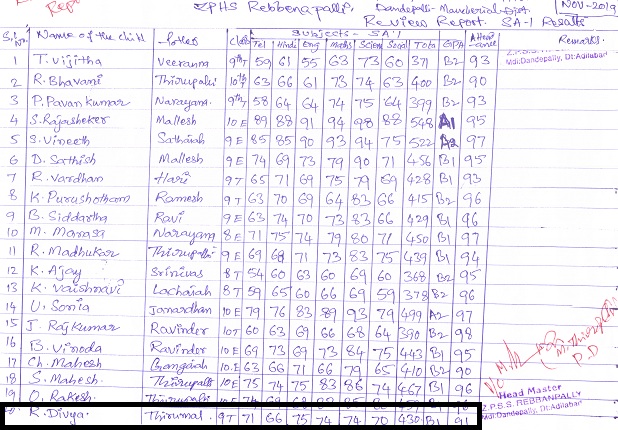 ZPHS Rebbenapally, Dandepally - Mancherial - Dist. NOV-2019
Review Report. SA-1 Results
Subjects - SA-1
S.No. Name of the child Father Class Tel Hindi Eng Maths Scien Social Total GPA Attendance Remarks
1 T. Vijitha Veeranna 9th T 59 61 55 63 73 60 371 B2 93
2 R. Bhavani Thirupathi 10th T 63 66 61 73 74 63 400 B2 90
3 P. Pavan kumar Narayana 9th T 58 64 64 74 75 64 399 B2 93
4 S. Rajasheker Mallesh 10 E 89 88 91 94 98 88 548 A1 95
5 S. Vineeth Sathaiah 9 E 85 85 90 93 94 75 522 A2 97
6 D. Sathish Mallesh 9 E 74 69 73 79 90 71 456 B1 95
7 R. Vardhan Hari 9 T 65 71 69 75 79 69 428 B1 93
8 K. Purushotham Ramesh 9 T 63 70 69 64 83 66 415 B2 96
9 B. Siddartha Ravi 9 E 63 74 70 73 83 66 429 B1 96
10 M. Manasa Narayana 8 E 71 75 74 79 80 71 450 B1 97
11 R. Madhukar Thirupathi 9 E 69 68 71 73 83 75 439 B1 94
12 K. Ajay Srinivas 8 T 54 60 63 60 69 60 368 B2 95
13 K. Vaishnavi Lachaiah 8 T 59 65 60 66 69 59 378 B2 96
14 U. Sonia Janardhan 10 E 79 76 83 89 93 79 499 A2 97
15 J. Rajkumar Ravinder 10 T 60 63 69 66 68 64 390 B2 98
16 B. Vinoda Ravinder 10 E 69 73 69 73 84 75 443 B1 95
17 Ch. Mahesh Gangaiah 10 E 63 66 71 66 79 65 410 B2 90
18 S. Mahesh Thirupathi 10 E 75 74 75 83 86 74 467 B1 96
19 O. Rakesh Thirupathi
R. Divya Thirumal 9 T 71 66 75 74 74 70 430 B1 91
Mdl: Dandepally, Dt: Adilabad
Head Master
Z.P.S.S. REBBANPALLY
Mdl: Dandepally, Dt: Adilabad
P.D